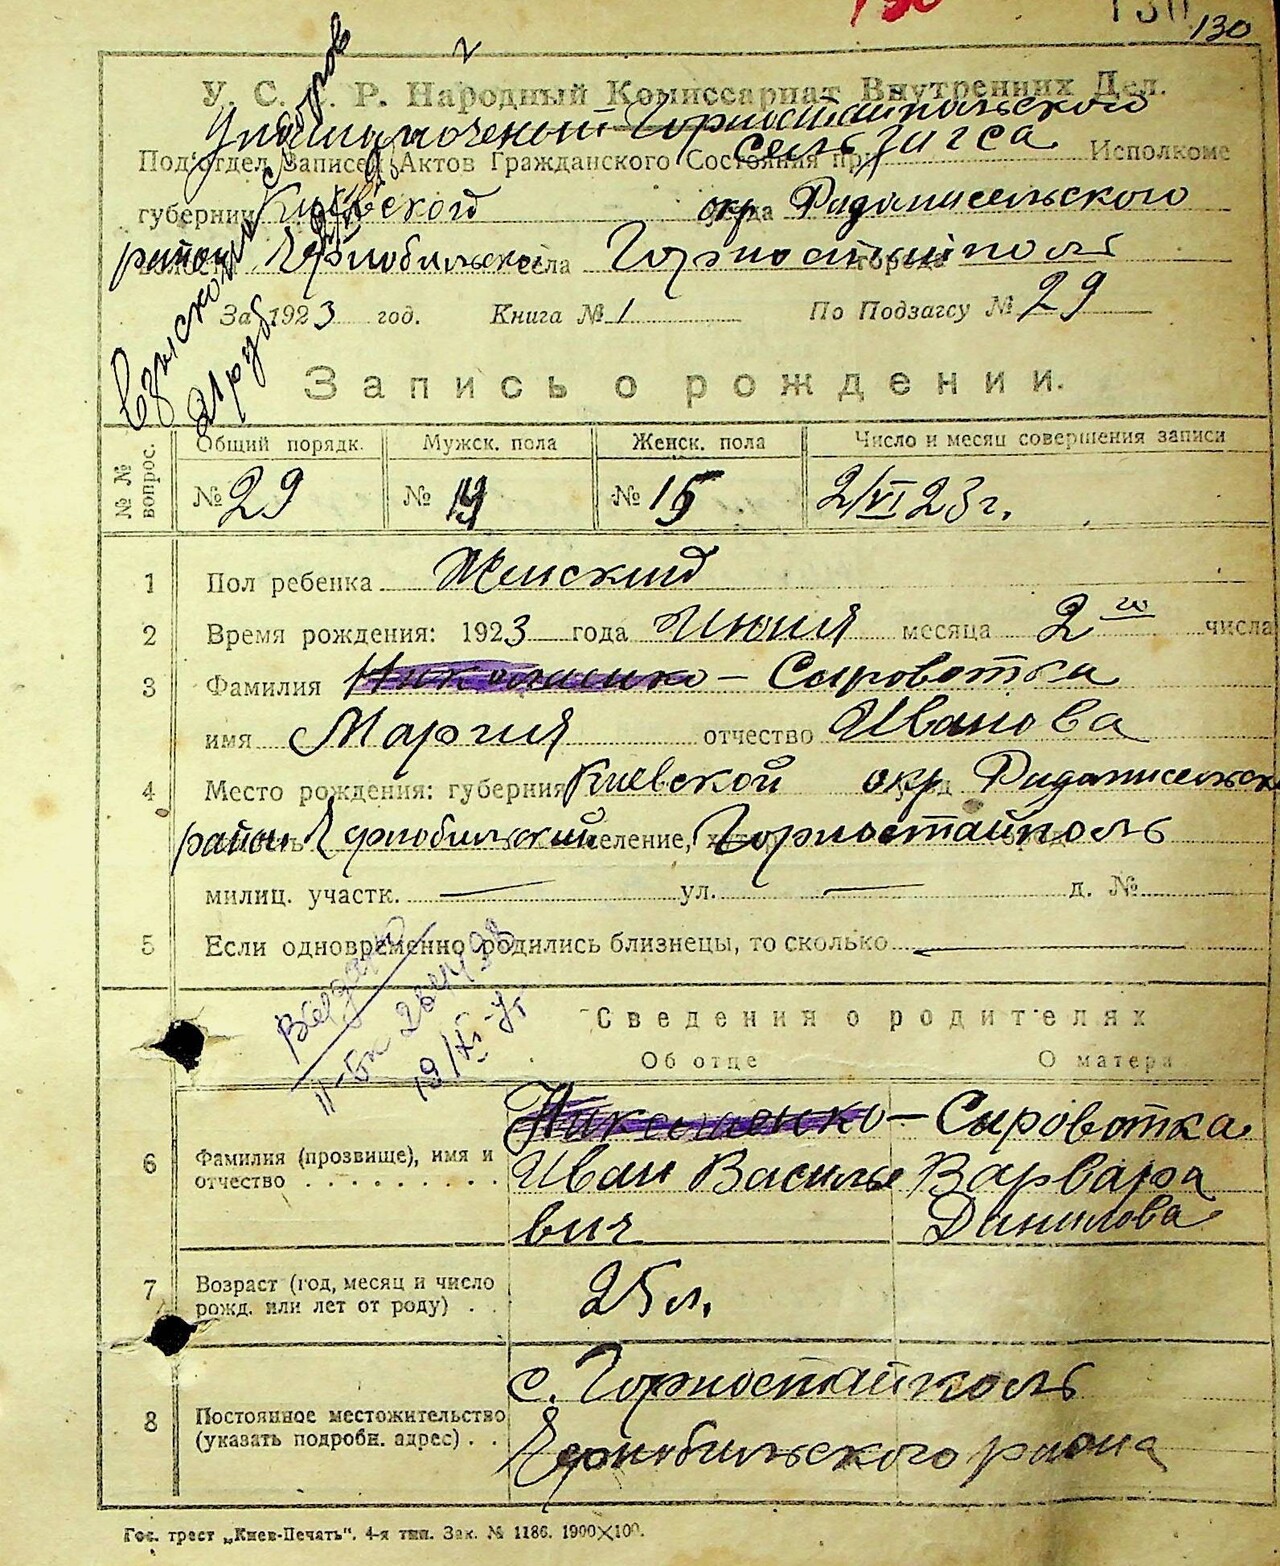 130
130
130
У. С. С. Р. Народный Комиссариат Внутренних Дел.
Уполномоченый Горностайпольского
сель загса
Под'отдел Записей Актов Гражданского Состояния при Исполкоме
губернии Киевской окр Радомисельского
район Чернобильски села Горностайполь города
За 1923 год. Книга № 1 По Подзагсу № 29
взыскан сбор
21 руб
Запись о рождении.
№ № вопрос.
Общий порядк. Мужск. пола Женск. пола Число и месяц совершения записи
№ 29 № 14 № 15 2/VI 23 г.
1 Пол ребенка Женский
2 Время рождения: 1923 года Июня месяца 2го числа
3 Фамилия Николаенко – Сыровотка
имя Мария отчество Иванова
4 Место рождения: губерния Киевской окр Радомисельск
район Чернобильский селение, Горностайполь
милиц. участк. — ул. — д. №
5 Если одновременно родились близнецы, то сколько —
Выдано
19/XI-47
Сведения о родителях
Об отце О матера
6 Фамилия (прозвище), имя и отчество . . . . . . . . .
Николаенко – Сыровотка
Иван Василье Варвара
вич Данилова
7 Возраст (год, месяц и число рожд. или лет от роду) . .
25 л.
8 Постоянное местожительство (указать подробн. адрес) . .
с. Горностайполь
Чернобильского раиона
Гос. трест „Киев-Печать". 4-я тип. Зак. № 1186. 1900×100.